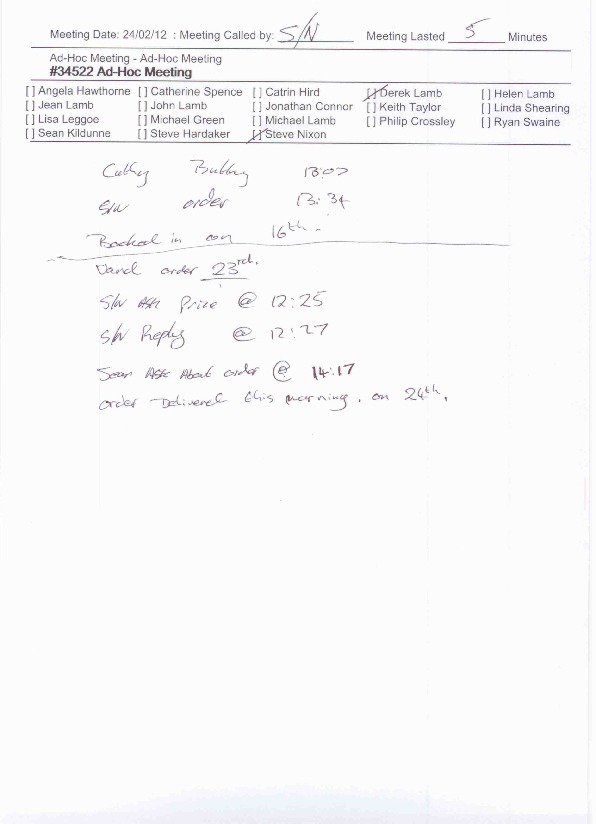 Meeting Date: 24/02/12 : Meeting Called by: S/N Meeting Lasted 5 Minutes
Ad-Hoc Meeting - Ad-Hoc Meeting
#34522 Ad-Hoc Meeting
[ ] Angela Hawthorne [ ] Catherine Spence [ ] Catrin Hird [/] Derek Lamb [ ] Helen Lamb
[ ] Jean Lamb [ ] John Lamb [ ] Jonathan Connor [ ] Keith Taylor [ ] Linda Shearing
[ ] Lisa Leggoe [ ] Michael Green [ ] Michael Lamb [ ] Philip Crossley [ ] Ryan Swaine
[ ] Sean Kildunne [ ] Steve Hardaker [/] Steve Nixon
Cathy 13:07
S/W order 13:34
Booked in on 16th.
order 23rd.
S/W Ask Price @ 12:25
S/W Reply @ 12:27
Sean Ask About order @ 14:17
order Delivered this morning, on 24th.